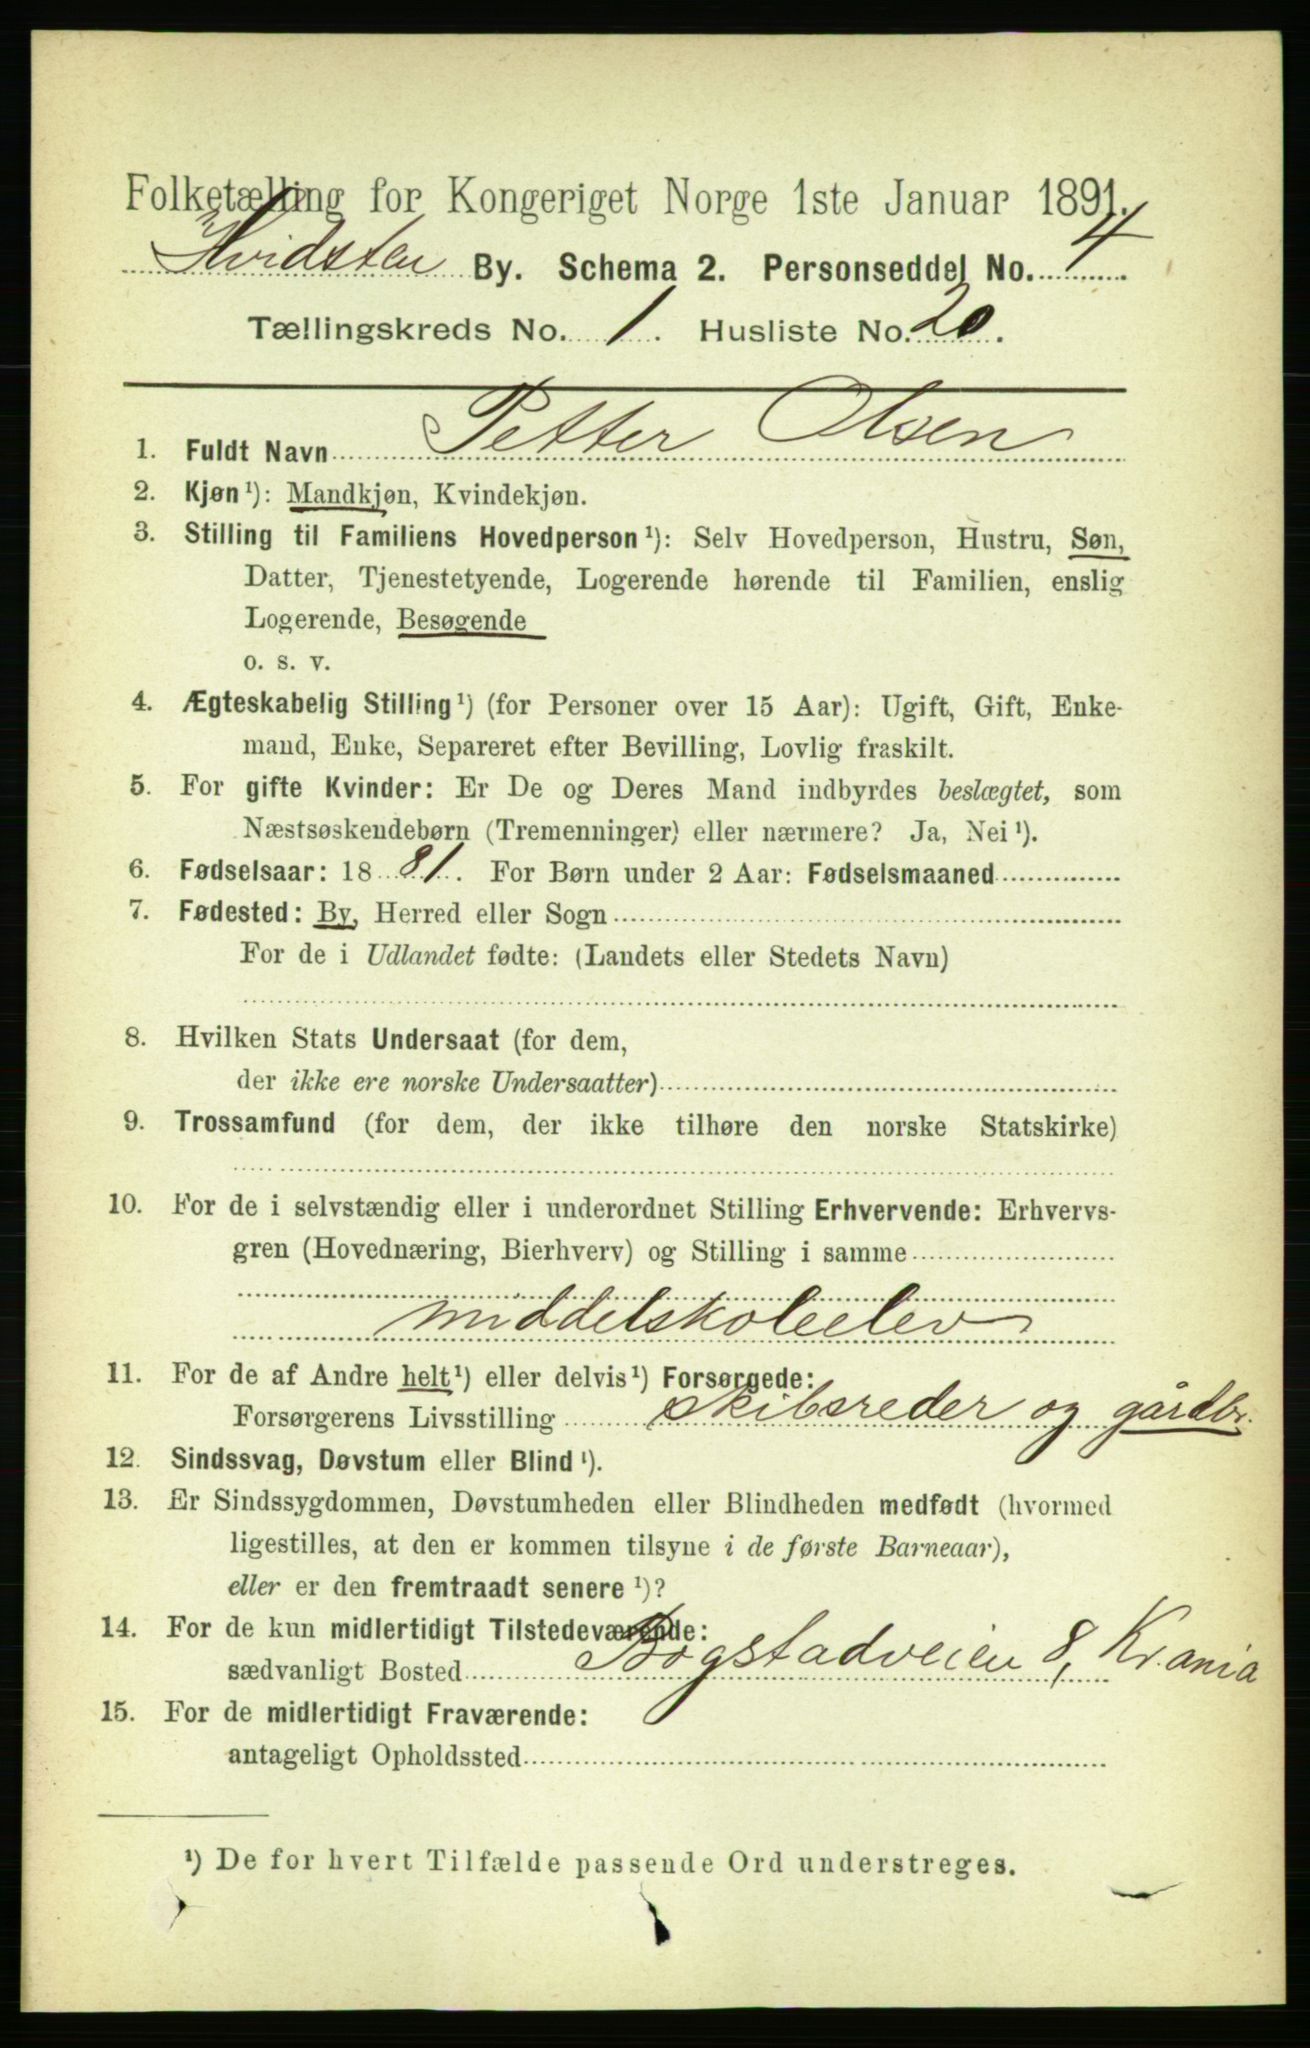 Folketælling for Kongeriget Norge 1ste Januar 1891.
Hvidsten By. Schema 2. Personseddel No. 4
Tællingskreds No. 1. Husliste No. 20.
1. Fuldt Navn Petter Olsen
2. Kjøn¹): Mandkjøn, Kvindekjøn.
3. Stilling til Familiens Hovedperson¹): Selv Hovedperson, Hustru, Søn,
Datter, Tjenestetyende, Logerende hørende til Familien, enslig
Logerende, Besøgende
o. s. v.
4. Ægteskabelig Stilling¹) (for Personer over 15 Aar): Ugift, Gift, Enke-
mand, Enke, Separeret efter Bevilling, Lovlig fraskilt.
5. For gifte Kvinder: Er De og Deres Mand indbyrdes beslægtet, som
Næstsøskendebørn (Tremenninger) eller nærmere? Ja, Nei¹).
6. Fødselsaar: 1881. For Børn under 2 Aar: Fødselsmaaned
7. Fødested: By, Herred eller Sogn
For de i Udlandet fødte: (Landets eller Stedets Navn)
8. Hvilken Stats Undersaat (for dem,
der ikke ere norske Undersaatter)
9. Trossamfund (for dem, der ikke tilhøre den norske Statskirke)
10. For de i selvstændig eller i underordnet Stilling Erhvervende: Erhvervs-
gren (Hovednæring, Bierhverv) og Stilling i samme
middelskoleelev
11. For de af Andre helt¹) eller delvis¹) Forsørgede:
Forsørgerens Livsstilling skibsreder og gårdbr.
12. Sindssvag, Døvstum eller Blind¹).
13. Er Sindssygdommen, Døvstumheden eller Blindheden medfødt (hvormed
ligestilles, at den er kommen tilsyne i de første Barneaar),
eller er den fremtraadt senere¹)?
14. For de kun midlertidigt Tilstedeværende:
sædvanligt Bosted Bogstadveien 8, Kr.ania
15. For de midlertidigt Fraværende:
antageligt Opholdssted
¹) De for hvert Tilfælde passende Ord understreges.